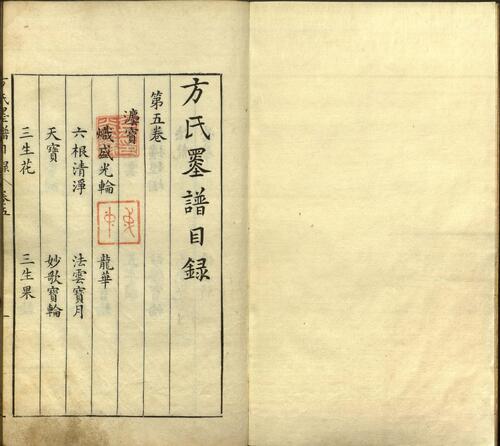 方氏墨譜目録
第五卷
瀍寳
熾盛光輪 龍華
六根清淨 法雲寳月
天寳 妙歌寳輪
三生花 三生果
方氏墨譜目録 卷五